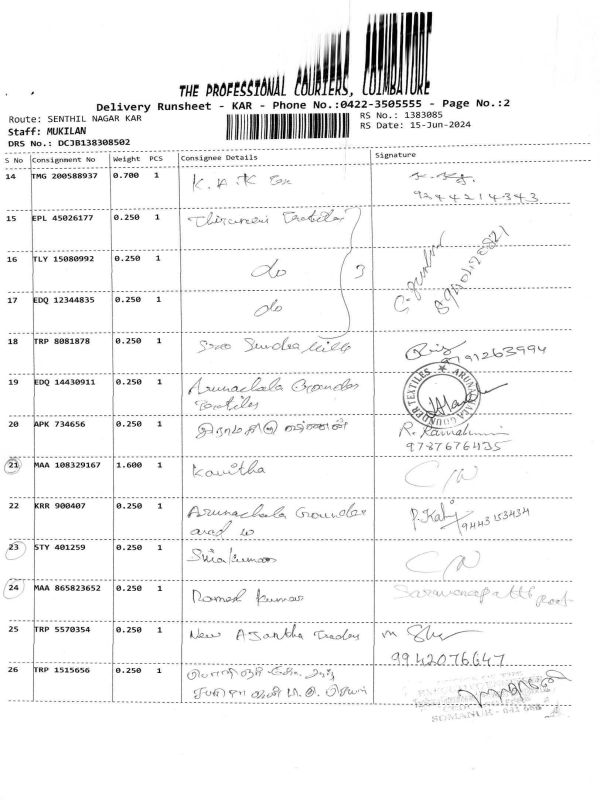 THE PROFESSIONAL COURIERS, COIMBATORE
Delivery Runsheet - KAR - Phone No.:0422-3505555 - Page No.:2
Route: SENTHIL NAGAR KAR
RS No.: 1383085
Staff: MUKILAN
RS Date: 15-Jun-2024
DRS No.: DCJB138308502
S No Consignment No Weight PCS Consignee Details Signature
14 TMG 200588937 0.700 1 K.A.K
9244214343
15 EPL 45026177 0.250 1
16 TLY 15080992 0.250 1 do 3
17 EDQ 12344835 0.250 1 do
18 TRP 8081878 0.250 1
9791263994
19 EDQ 14430911 0.250 1 Arunachala Gounder
Textiles
20 APK 734656 0.250 1 R.
9787676435
21 MAA 108329167 1.600 1 Kavitha C/N
22 KRR 900407 0.250 1 Arunachala Gounder P.
9443153434
23 STY 401259 0.250 1 C/N
24 MAA 865823652 0.250 1 kumar
25 TRP 5570354 0.250 1 New Ajantha Traders m
9942076647
26 TRP 1515656 0.250 1
SOMANUR